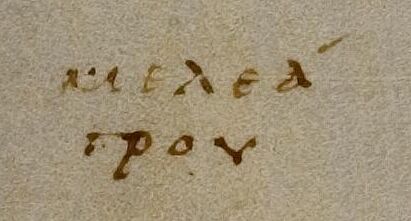 μελεά
γρου